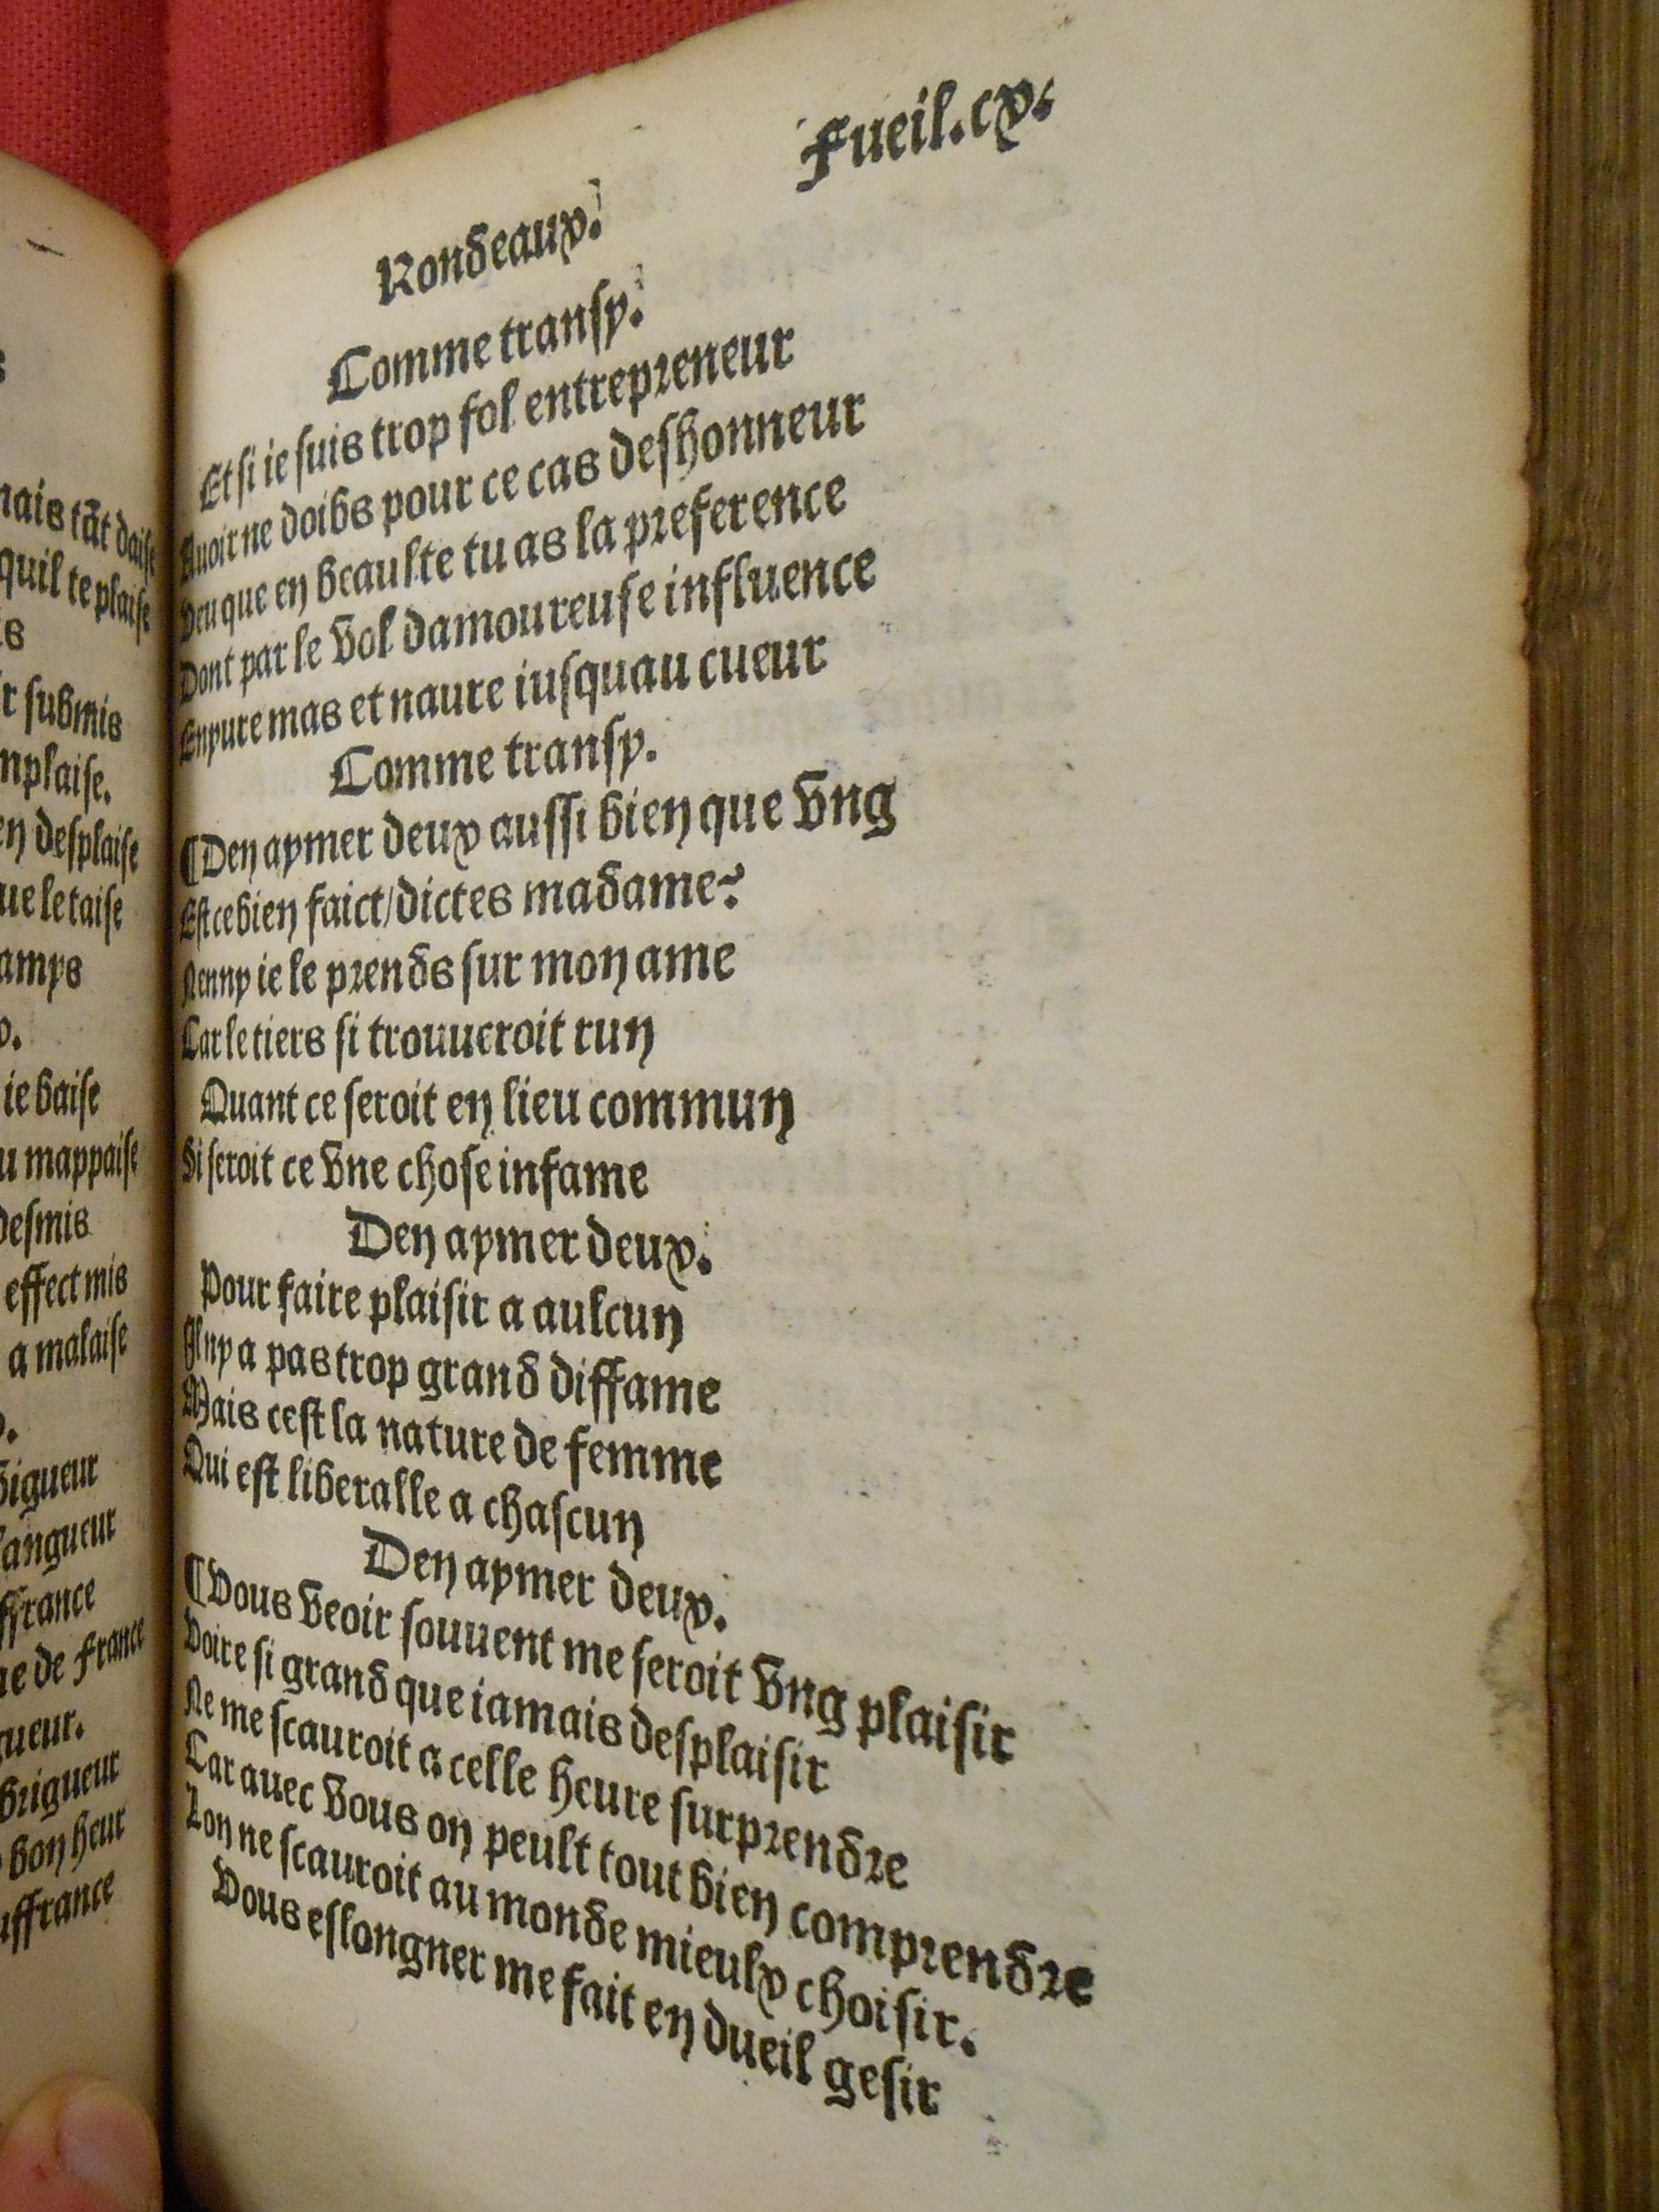 nais tãt daise
quil te plaise
is
r submis
nplaise.
en desplaise
ue le taise
amps
ie baise
u mappaise
desmis
effect mis
a malaise
vigueur
langueur
ffrance
ue de France
ueur.
brigueur
bon heur
uffrance
Fueil.cx.
Rondeaux.
Comme transy.
Et si ie suis trop fol entrepreneur
Auoir ne doibs pour ce cas deshonneur
Veu que en beaulte tu as la preference
Dont par le vol damoureuse influence
Enyure mas et naure iusquau cueur
Comme transy.
¶Den aymer deux aussi bien que vng
Est ce bien faict/dictes madame?
Nenny ie le prends sur mon ame
Car le tiers si trouueroit run
Quant ce seroit en lieu commun
Si seroit ce vne chose infame
Den aymer deux.
Pour faire plaisir a aulcun
Il ny a pas trop grand diffame
Mais cest la nature de femme
Qui est liberalle a chascun
Den aymer deux.
¶Vous veoir souuent me seroit vng plaisir
Voire si grand que iamais desplaisir
Ne me scauroit a celle heure surprendre
Car auec vous on peult tout bien comprendre
Lon ne scauroit au monde mieulx choisir.
Vous eslongner me fait en dueil gesir